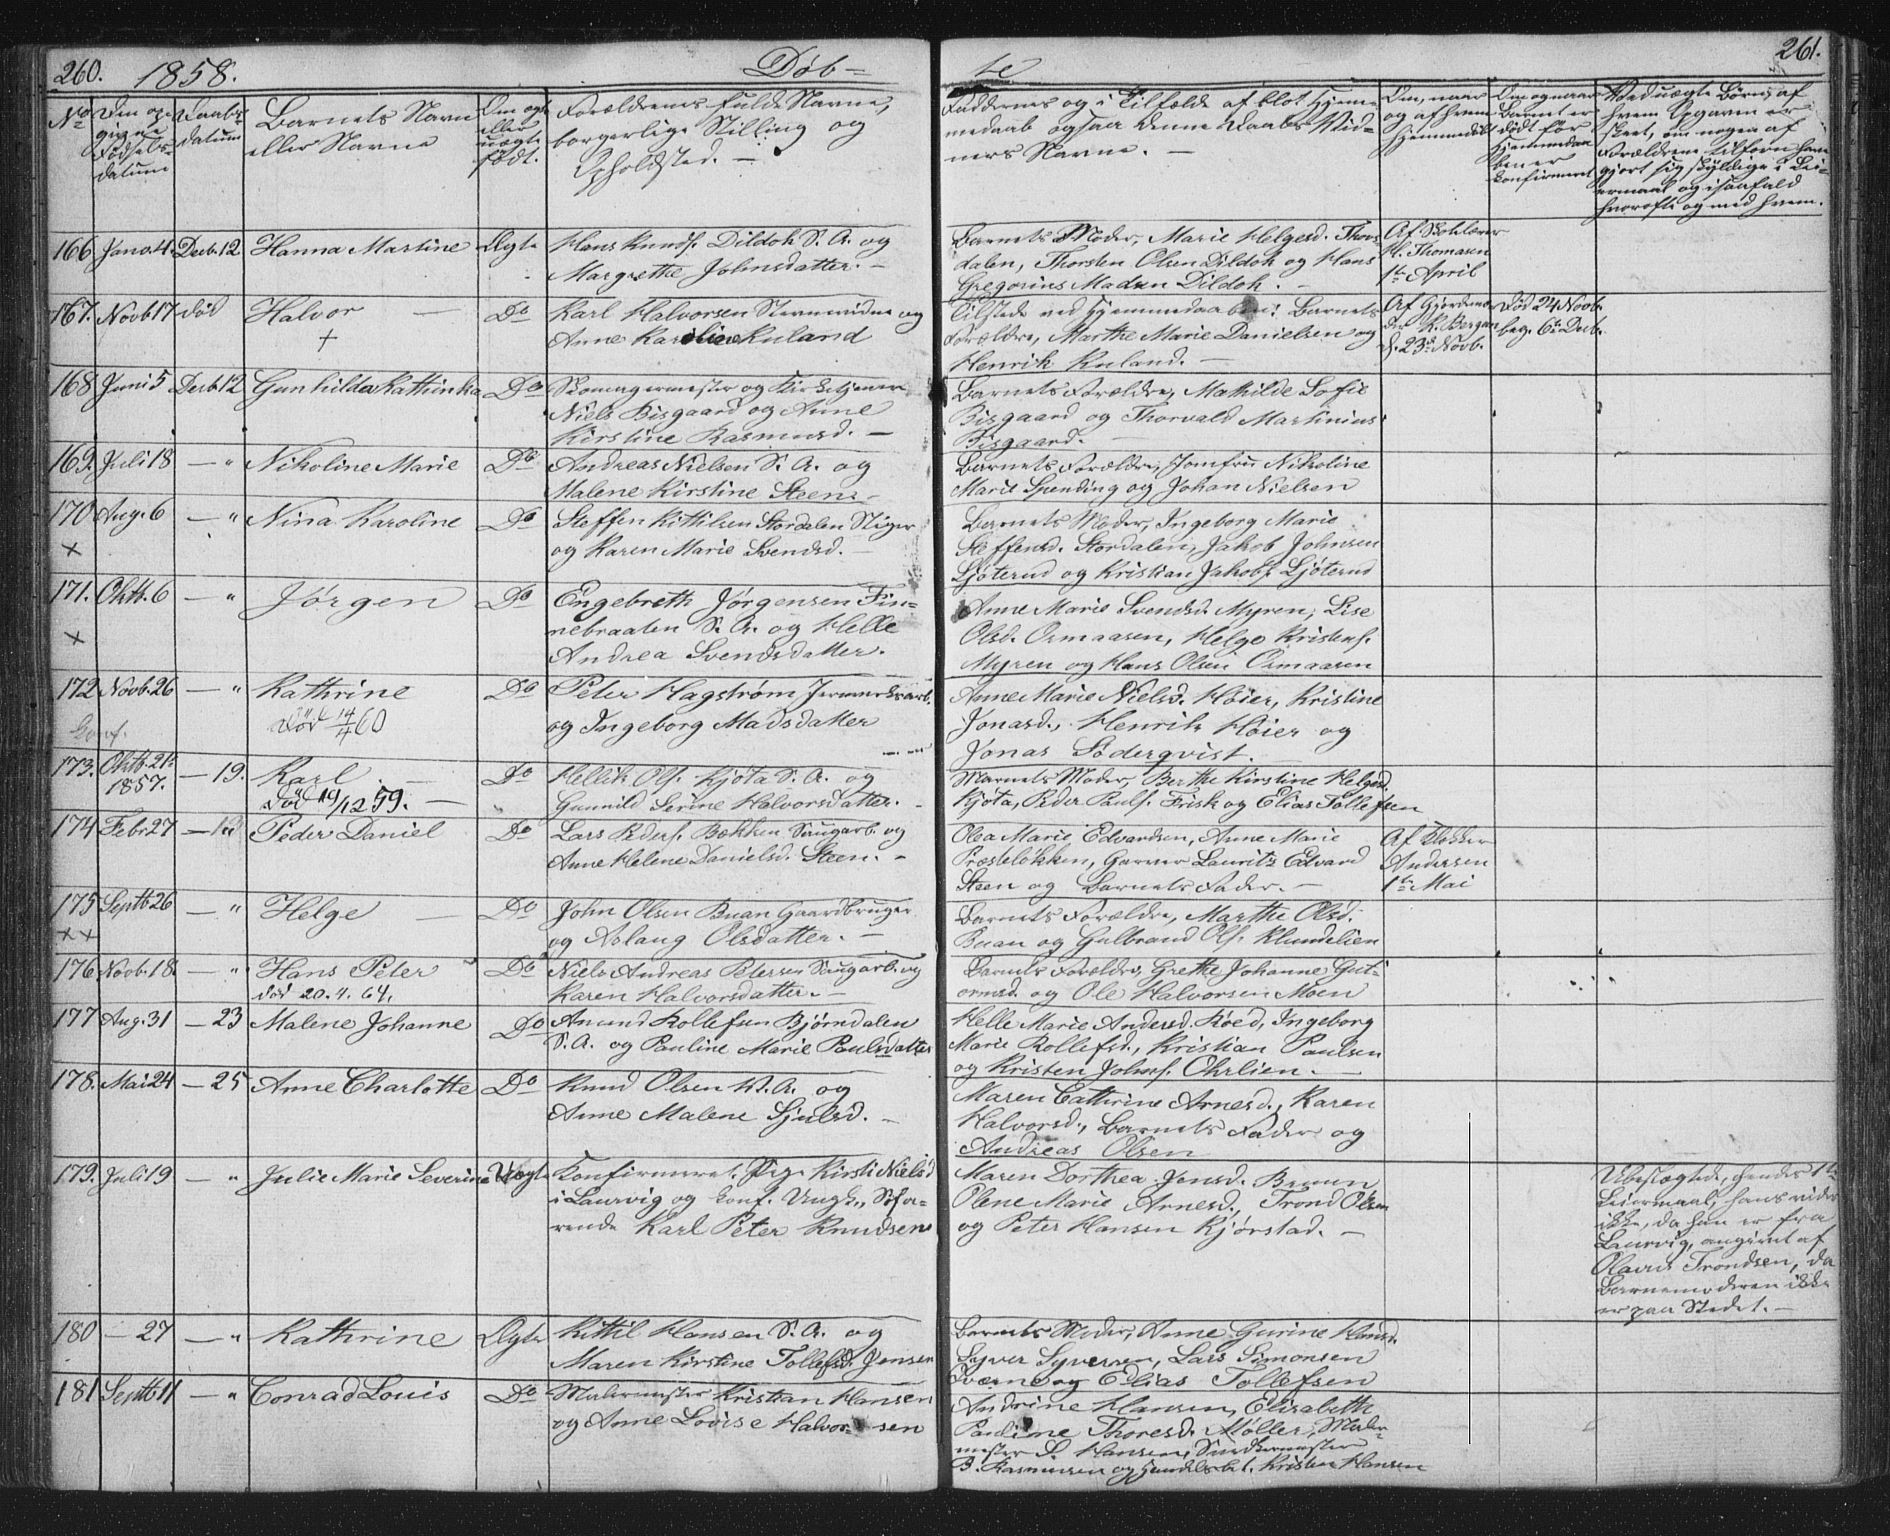 260. 1858. Døb-
te 261.
No
Den op-
givne
Fødsels-
datum
Daabs-
datum
Barnets Navn
eller Navne
Om ægte
eller
uægte
født.
Forældrenes fulde Navne,
borgerlige Stilling og
Opholdsted. —
Faddernes og i Tilfælde af blot Hjem-
medaab ogsaa denne Daabs Vid-
ners Navne. —
Om, naar
og af hvem
hjemmedøbt
Om og naar
Barnet er
død før
Hjemmedaa-
ben er
konfirmeret
Ved uægte Børn, af
hvem Opgaven er
skeet, om nogen af
Forældrene tilforn have
gjort sig skyldige i Lei-
ermaal og i saafald
hvorofte og med hvem.
166 Janr. 4. Decb. 12 Hanna Martine Ægte Hans Knuds. Dildok S. A. og
Margrethe Johnsdatter. —
Barnets Moder, Marie Helgesd. Thors-
dalen, Thorsten Olsen Dildok og Hans
Gregorius Madsen Dildok. —
Af Skolelærer
H. Thomasen
1te April
167. Novb. 17 død Halvor — Do Karl Halvorsen og
+ Anne Karoline Ruland
Tilstede ved Hjemmedaaben: Barnets
Forældre, Marthe Marie Danielsen og
Henrik Ruland. —
Af Gjordemo-
der K. Bergan
d. 23de Novb.
Død 24 Novb.
beg. 6te Decb.
168 Juni 5 Decb. 12 Gunhilda Kathinka Do Skomagermester og Kirketjener
Niels Bisgaard og Anne
Kirstine Rasmusd. —
Barnets Forældre, Mathilde Sofie
Bisgaard og Thorvald Martinius
Bisgaard. —
169. Juli 18 — " Nikoline Marie Do Andreas Nielsen S. A. og
Malene Kirstine Steen. —
Barnets Forældre, Jomfru Nikoline
Marie Spending og Johan Nielsen
170 Aug. 6 — " Nina Karoline Do Steffen Kittilsen Stordalen Stiger
x og Karen Marie Svendsd. —
Barnets Moder, Ingeborg Marie
Steffensd. Stordalen, Jakob Johnsen
Ljøterud og Kristian Jakobs. Ljøterud
171. Oktb. 6 — " Jørgen Do Engebreth Jørgensen Fin-
x nebraaten S. A. og Helle
Andrea Svendsdatter.
Anne Marie Svendsd. Myren, Lise
Olsd. Ormaasen, Helge Kristens.
Myren og Hans Olsen Ormaasen
172 Novb. 26 — " Kathrine Do Peter Hagstrøm Jernverksarb.
Død 14/4 60 og Ingeborg Madsdatter
Anne Marie Nielsd. Høier, Kristine
Jonasd., Henrik Høier og
Jonas Söderqvist.
173. Oktb. 21 — 19. Karl — Do Hellik Ols. Kjota S. A. og
1857. Død 19/12 59. — Gunnild Serine Halvorsdatter. —
Barnets Moder, Berthe Kirstine Helgesd.
Kjota, Peder Pauls. Frisk og Elias Tollefsen
174 Febr. 27 — Peder Daniel Do Lars Peders. Bækken Saugarb. og
Anne Helene Danielsd. Steen. —
Olea Marie Edvardsen, Anne Marie
Præsteløkken, Garver Lauritz Edvard
Steen og Barnets Fader. —
Af Klokker
Andersen
1te Mai
175 Septb 26 — " Helge — Do John Olsen Buan Gaardbruger
x x og Aslaug Olsdatter. —
Barnets Forældre, Marthe Olsd.
Buan og Gulbrand Ols. Klundelien
176 Novb. 18. — " Hans Peter Do Niels Andreas Petersen Saugarb. og
død 20. 4. 64. Karen Halvorsdatter. —
Barnets Forældre, Grethe Johanne Gut-
ormsd. og Ole Halvorsen Moen
177 Aug. 31 — 23 Malene Johanne Do Amund Rollefsen Bjørndalen
S. A. og Pauline Marie Paulsdatter
Helle Marie Andersd. Røed, Ingeborg
Marie Rollefsd., Kristian Paulsen
og Kristen Johns. Ohrlien. —
178. Mai 24 — 25 Anne Charlotte Do Knud Olsen V. A. og
Anne Malene Sjulsd. —
Maren Cathrine Arnesd., Karen
Halvorsd., Barnets Fader og
Andreas Olsen
179. Juli 9 — " Julie Marie Severine Uægte Konfirmeret Pige Kirsti Nielsd
i Laurvig og konf. Ungk., Søfa-
rende Karl Peter Knudsen
Maren Dorthea Jensd. Bruun
Olene Marie Arnesd., Trond Olsen
og Peter Hansen Kjørstad. —
Ubeslægtede, hendes 1te
Leiermaal, hans vides
ikke, da han er fra
Laurvig, angivet af
Olaves Trondsen, da
Barnemoderen ikke
er paa Stedet. —
180 — 27 — " Kathrine Ægte Kittil Hansen S. A. og
Maren Kirstine Tollefsd. Jensen
Barnets Moder, Anne Gurine Hansd.
Syver Syversen, Lars Simonsen
Tværne og Elias Tollefsen
181 Septb 11 — " Conrad Louis Do Malermester Kristian Hansen
og Anne Lovise Halvorsen
Andrine Hansen, Elisabeth
Pauline Thoresd. Møller, Maler-
mester S. Hansen, Snedkermester
B. Rasmussen og Handelsbet. Kristen Hansen